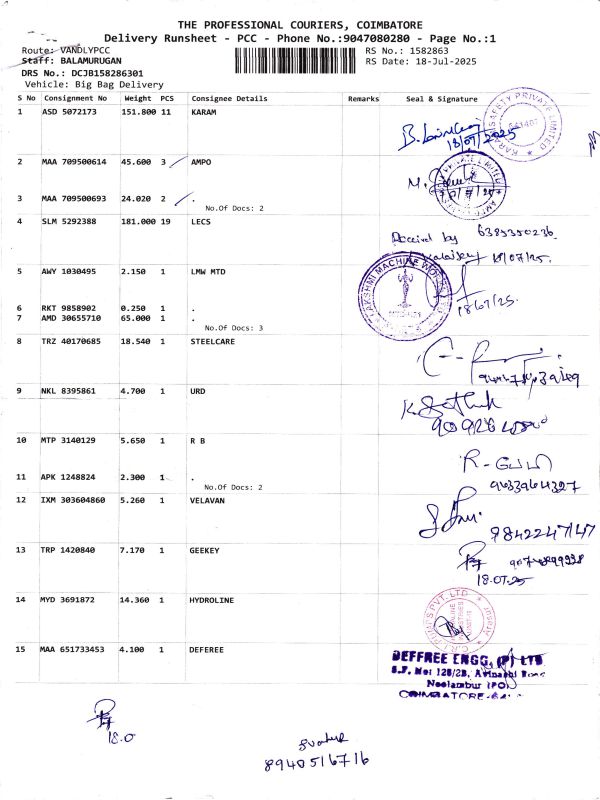 THE PROFESSIONAL COURIERS, COIMBATORE
Delivery Runsheet - PCC - Phone No.:9047080280 - Page No.:1
Route: VANDLYPCC
RS No.: 1582863
Staff: BALAMURUGAN
RS Date: 18-Jul-2025
DRS No.: DCJB158286301
Vehicle: Big Bag Delivery
S No Consignment No Weight PCS Consignee Details Remarks Seal & Signature
1 ASD 5072173 151.800 11 KARAM
18/07/2025
2 MAA 709500614 45.600 3 AMPO
3 MAA 709500693 24.020 2 .
No.Of Docs: 2
4 SLM 5292388 181.000 19 LECS
Received by 6385350236
18/07/25.
5 AWY 1030495 2.150 1 LMW MTD
LAKSHMI MACHINE WORKS
6 RKT 9858902 0.250 1 .
7 AMD 30655710 65.000 1 .
No.Of Docs: 3
8 TRZ 40170685 18.540 1 STEELCARE
9 NKL 8395861 4.700 1 URD
10 MTP 3140129 5.650 1 R B
11 APK 1248824 2.300 1 .
No.Of Docs: 2
9633964327
12 IXM 303604860 5.260 1 VELAVAN
9842247147
13 TRP 1420840 7.170 1 GEEKEY
18.07.25
14 MYD 3691872 14.360 1 HYDROLINE
15 MAA 651733453 4.100 1 DEFEREE
DEFFREE ENGG. (P) LTD
S.F. No: 128/2B, Avinashi Road
Neelambur (PO)
COIMBATORE-641
18.0
8940516716